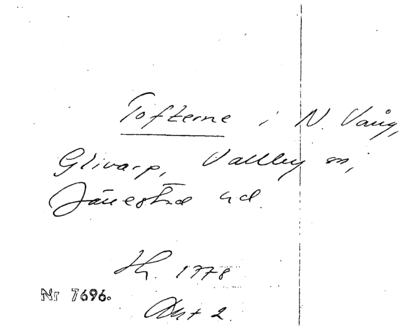 Tofterne i N. Vång,
Glivarp, Vallby sn,
Järrestad hd.
Sk. 1778
Nr 7696.
Akt 2